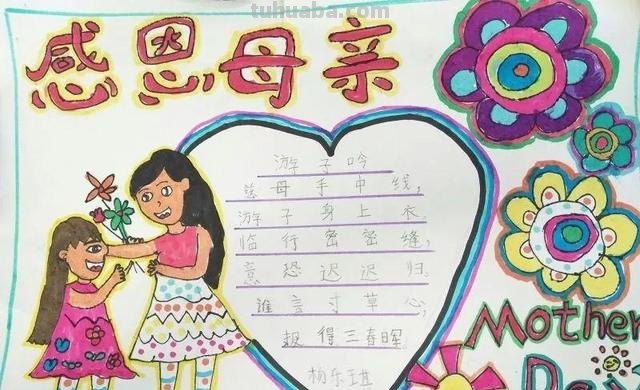 tuhuaba.com
感恩母亲
游子吟
慈母手中线,
游子身上衣.
临行密密缝,
意恐迟迟归.
谁言寸草心,
报得三春晖.
杨乐琪
Mother
Day